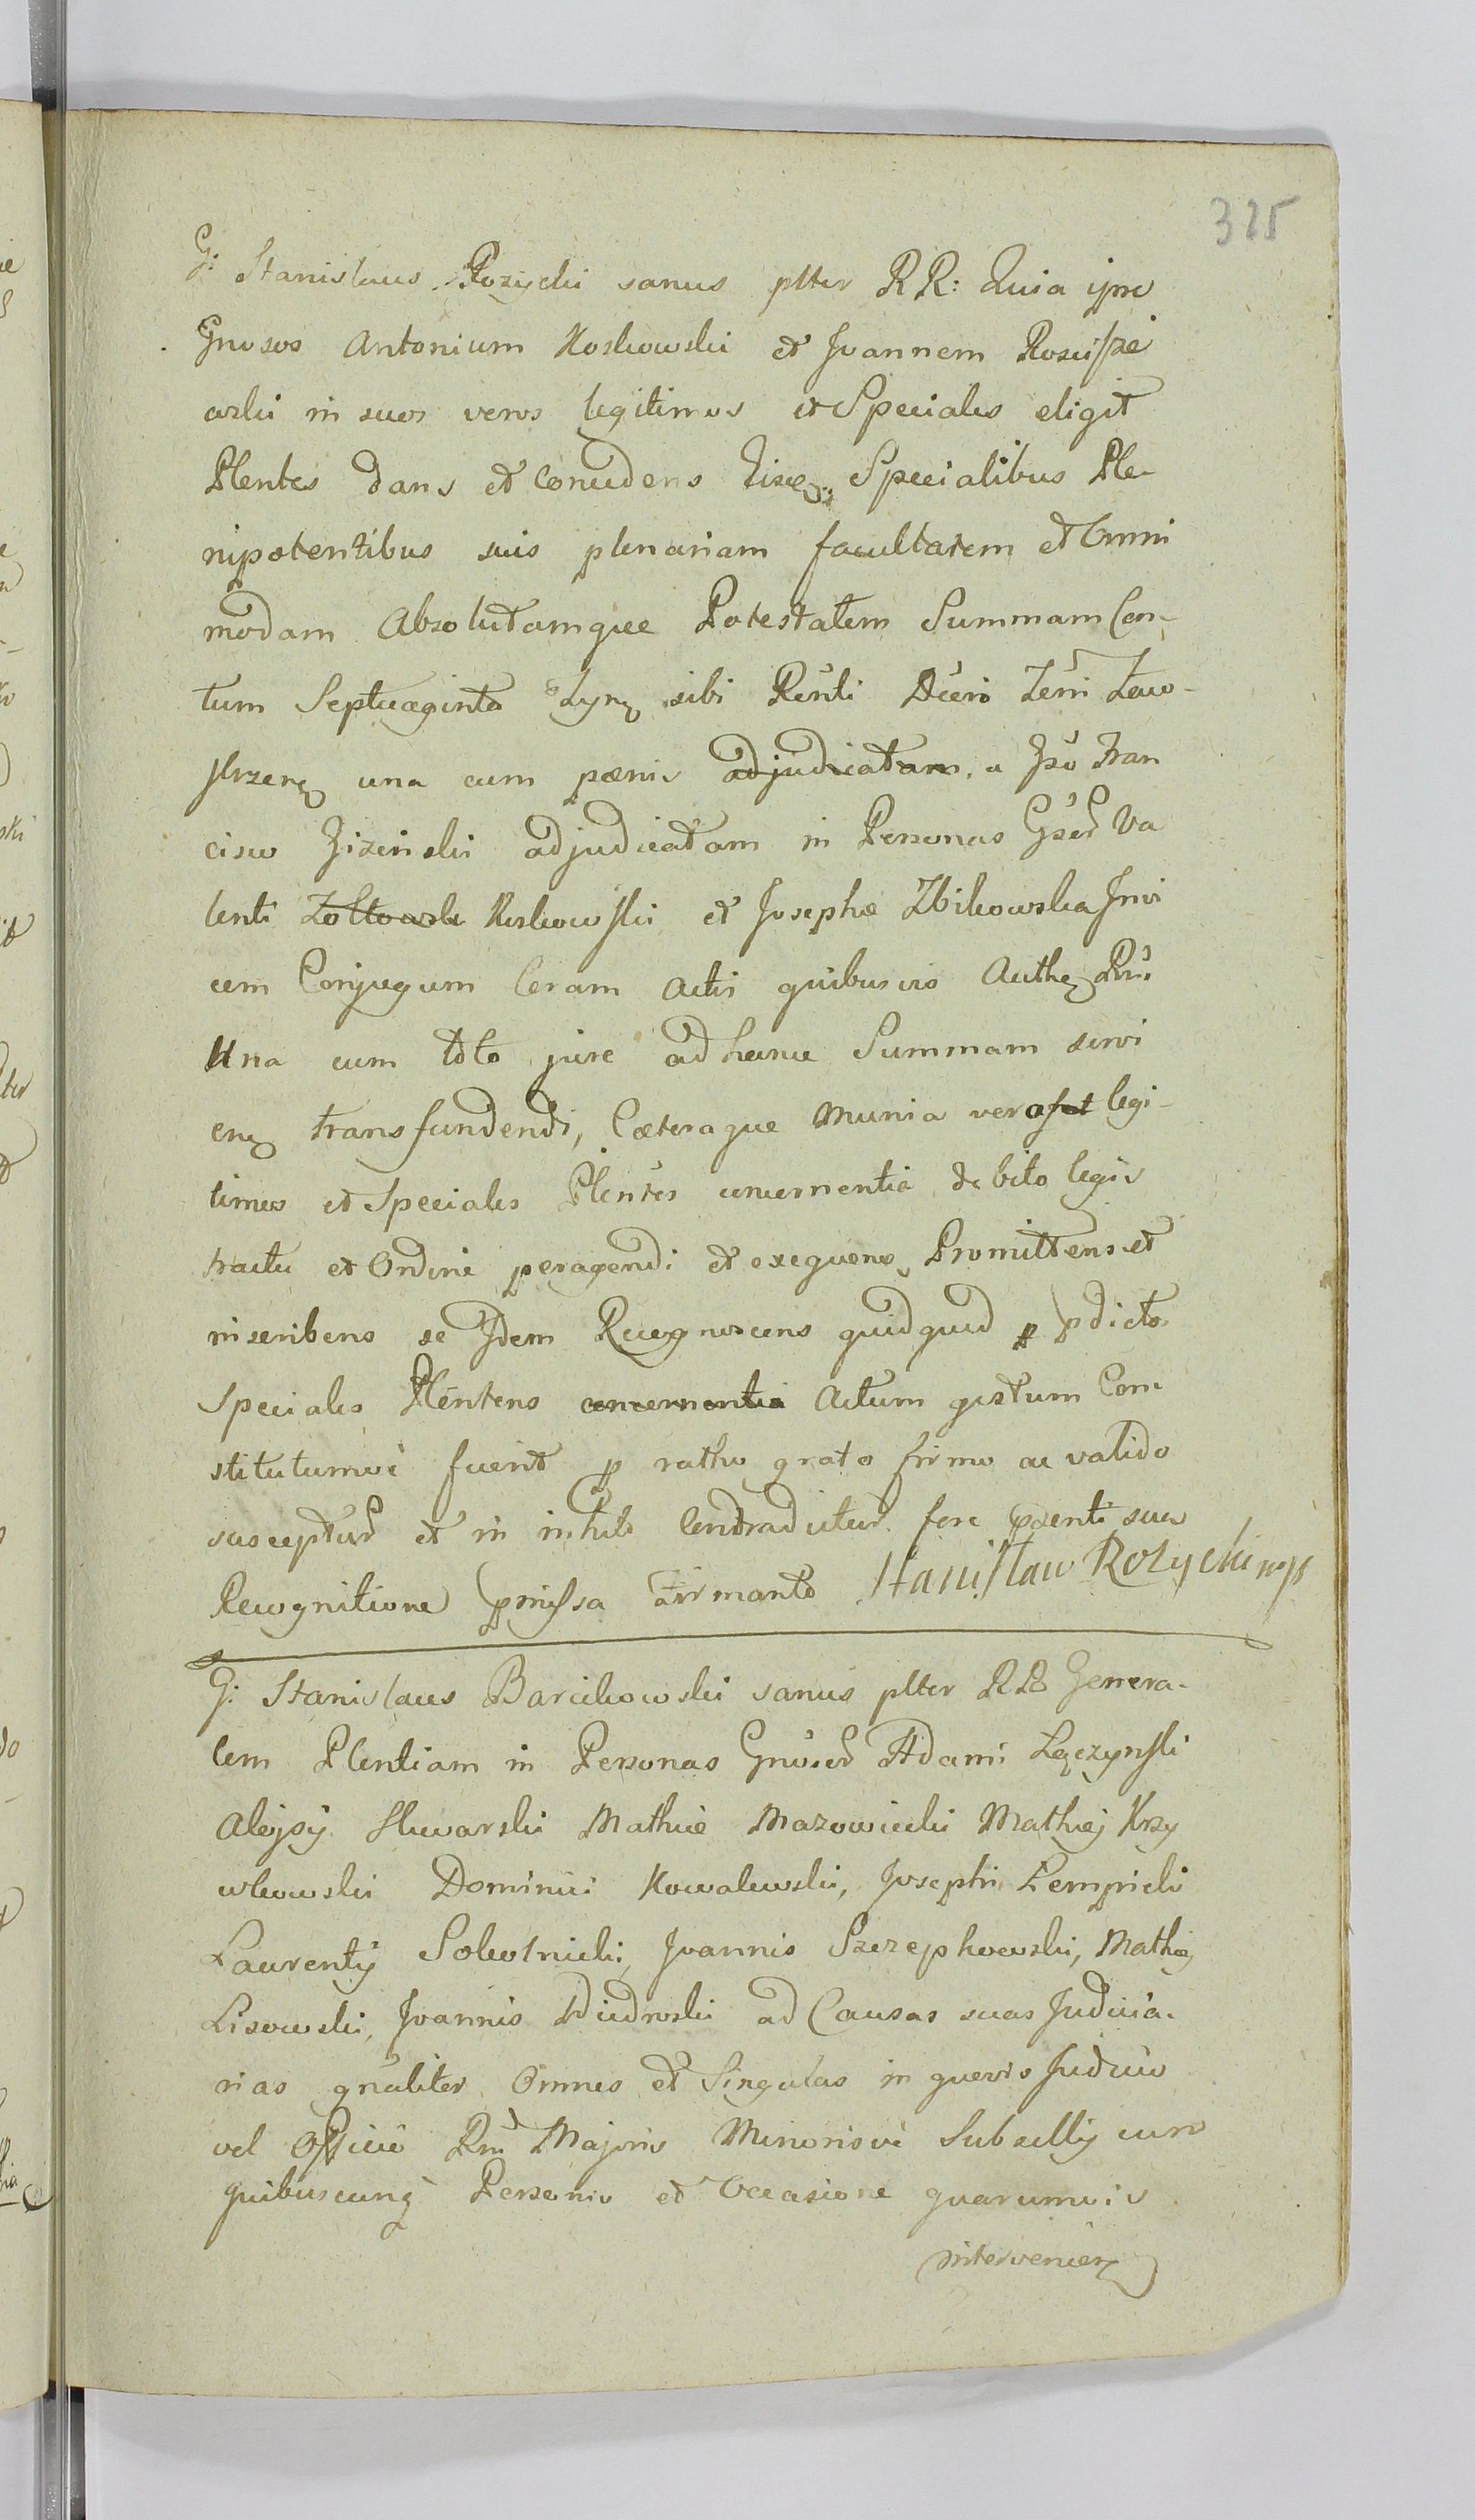 325
G: Stanislaus Rozycki sanus plter RR: Quia ipse
Gnosos Antonium Koskowski et Joannem Rosciszew
wski in suos veros legitimos et Speciales eligit
Plentes dans et concedens Eisdem Specialibus Ple-
nipotentibus suis plenariam facultatem et Omni
modam Absolutamque Potestatem Summam Cen-
tum Septuaginta sibi Rénti
una cum pœnis adjudicatam a Gso Fran
cisco Zizinski adjudicatam in Personas Gser Va
lenti Zołtowski Koskowski et Josepha Zbikowska Invi
cem Conjugum Coram Actis quibusvis Authen
Una cum toto jure ad hanc Summam servi
en transfundendi, Cæteraque Munia veros et legi-
timos et Speciales Pléntes concernentia debito legis
tractu et Ordine peragendi et exequen Promittens et
inscribens se Idem Recognoscens quidquid p pdictos
Speciales Pléntens concernentia Actum gestum Con
stitutumve fuerit p ratho grato firmo ac valido
suscepturd et in nihilo Contradicturd fore pzenti sua
Recognitione pmissa Firmante Stanisław Rozycki mp
G: Stanislaus Barcikowski sanus plter RR Genera-
lem Plentiam in Personas Gnoserd Adami Łęczynski
Aloysy Skwarski Mathiæ Mazowiecki Mathiej Krzy
wkowski Dominici Kowalewski, Josephi Lempicki
Laurenty Sokolnicki, Joannis Szczepkowski, Mathiej
Lisowski, Joannis ad Causas suas Judicia-
rias gnaliter Omnes et Singulas in quovis Judicio
vel Officio Majoris Minorisve Subselly cum
quibuscunq Personis et Occasione quarumvis
intervenien